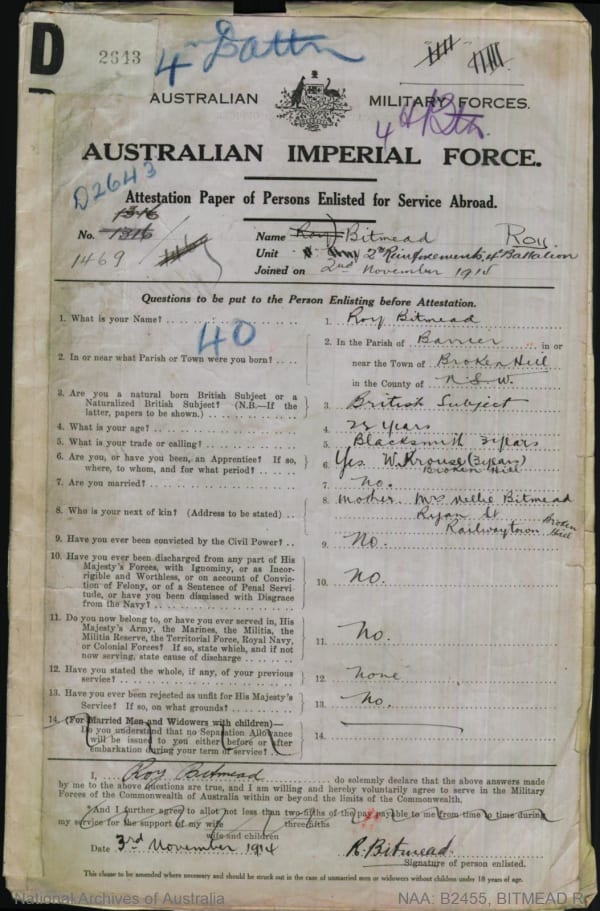 D
2643
4th Battn
AUSTRALIAN MILITARY FORCES.
4th Btn.
AUSTRALIAN IMPERIAL FORCE.
D2643
Attestation Paper of Persons Enlisted for Service Abroad.
1316
No. 1316
1469
Name (Roy) Bitmead Roy.
Unit 2nd Reinforcements, 4th Battalion
Joined on 2nd November 1914
Questions to be put to the Person Enlisting before Attestation.
1. What is your Name? 1. Roy Bitmead
40
2. In or near what Parish or Town were you born? 2. In the Parish of Barrier in or
near the Town of Broken Hill
in the County of N.S.W.
3. Are you a natural born British Subject or a
Naturalized British Subject? (N.B.—If the
latter, papers to be shown.) 3. British Subject
4. What is your age? 4. 23 years
5. What is your trade or calling? 5. Blacksmith 2 years
6. Are you, or have you been, an Apprentice? If so,
where, to whom, and for what period? 6. Yes W. Krouse (3 years)
Broken Hill
7. Are you married? 7. No.
8. Who is your next of kin? (Address to be stated) 8. Mother Mrs Nellie Bitmead
Ryan St
Railwaytown Broken Hill
9. Have you ever been convicted by the Civil Power? 9. No.
10. Have you ever been discharged from any part of His
Majesty's Forces, with Ignominy, or as Incor-
rigible and Worthless, or on account of Convic-
tion of Felony, or of a Sentence of Penal Servi-
tude, or have you been dismissed with Disgrace
from the Navy? 10. No.
11. Do you now belong to, or have you ever served in, His
Majesty's Army, the Marines, the Militia, the
Militia Reserve, the Territorial Force, Royal Navy,
or Colonial Forces? If so, state which, and if not
now serving, state cause of discharge 11. No.
12. Have you stated the whole, if any, of your previous
service? 12. None
13. Have you ever been rejected as unfit for His Majesty's
Service? If so, on what grounds? 13. No.
14. (For Married Men and Widowers with children)—
Do you understand that no Separation Allowance
will be issued to you either before or after
embarkation during your term of service? 14.
I, Roy Bitmead do solemnly declare that the above answers made
by me to the above questions are true, and I am willing and hereby voluntarily agree to serve in the Military
Forces of the Commonwealth of Australia within or beyond the limits of the Commonwealth.
*And I further agree to allot not less than two-fifths of the pay payable to me from time to time during
three-fifths
my service for the support of my wife
wife and children
Date 3rd November 1914 R. Bitmead.
Signature of person enlisted.
This clause to be amended where necessary and should be struck out in the case of unmarried men or widowers without children under 18 years of age.
National Archives of Australia NAA: B2455, BITMEAD R